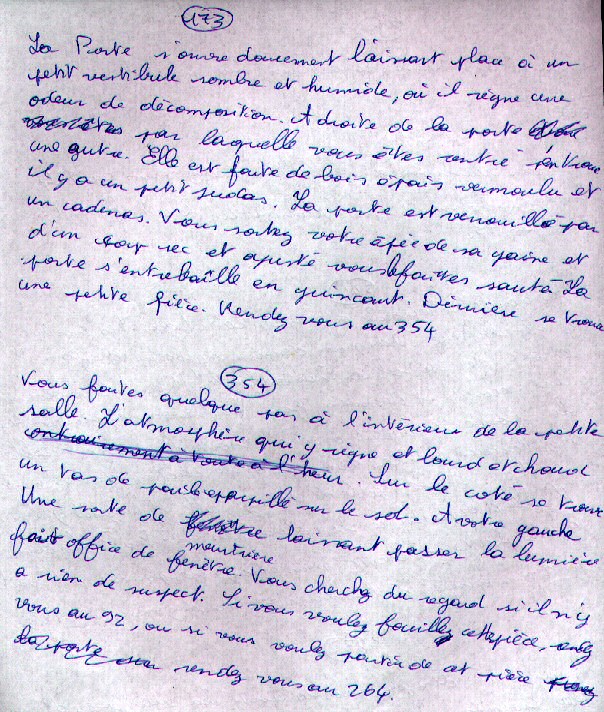 173
La Porte s'ouvre doucement laissant place à un
petit vestibule sombre et humide, où il règne une
odeur de décomposition. A droite de la porte
par laquelle vous êtes rentré
une autre. Elle est faite de bois épais vermoulu et
il y a un petit judas. La porte est verrouillée par
un cadenas. Vous sortez votre épée de sa gaine et
d'un coup sec et ajusté vous le faites sauté. La
porte s'entrebaille en grincant. Dérrière se trouve
une petite pièce. Rendez vous au 354
354
Vous faites quelque pas à l'intérieur de la petite
salle. L'atmosphère qui y règne et lourd et chaud
contrairement à toute à l'heur. Sur le coté se trouve
un tas de paille éparpillé sur le sol. A votre gauche
Une sorte de meurtrière laissant passer la lumière
fait office de fenêtre. Vous cherchez du regard si il n'y
a rien de suspect. Si vous voulez fouillez cette pièce, rendez
vous au 92, ou si vous voulez partir de cet pièce
rendez vous au 264.